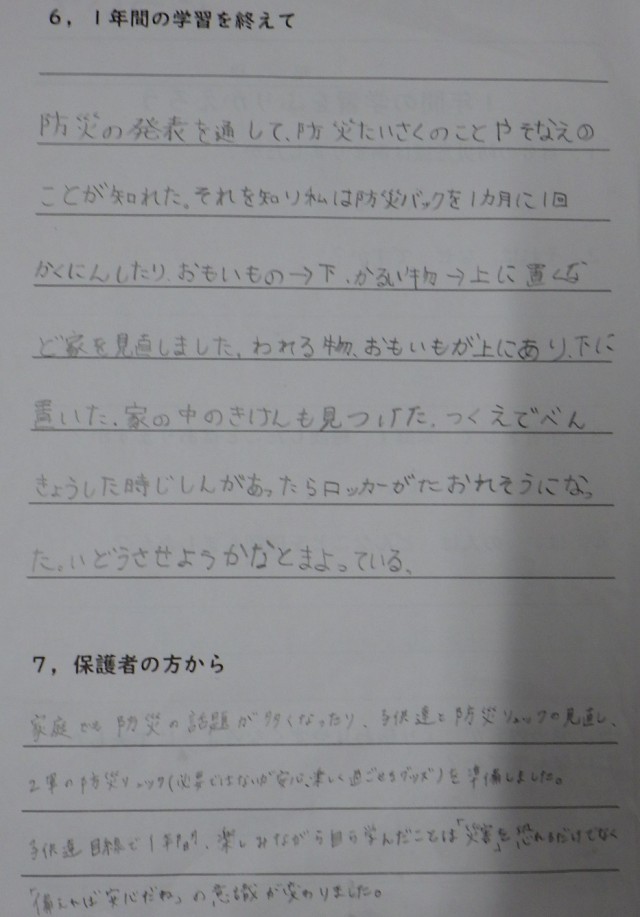 6，1年間の学習を終えて
防災の発表を通して、防災たいさくのことやそなえの
ことが知れた。それを知り私は防災バックを1カ月に1回
かくにんしたり、おもいもの→下、かるい物→上に置くな
ど家を見直しました。われる物、おもいもが上にあり、下に
置いた、家の中のきけんも見つけた、つくえでべん
きょうした時じしんがあったらロッカーがたおれそうになっ
た。いどうさせようかなとまよっている、
7，保護者の方から
家庭でも防災の話題が多くなったり、子供達と防災リュックの見直し、
2軍の防災リュック(必要ではないが安心、楽しく過ごせるグッズ)を準備しました。
子供達目線で1年間、楽しみながら自ら学んだことは「災害」を恐れるだけでなく
「備えれば安心だね」の意識が変わりました。